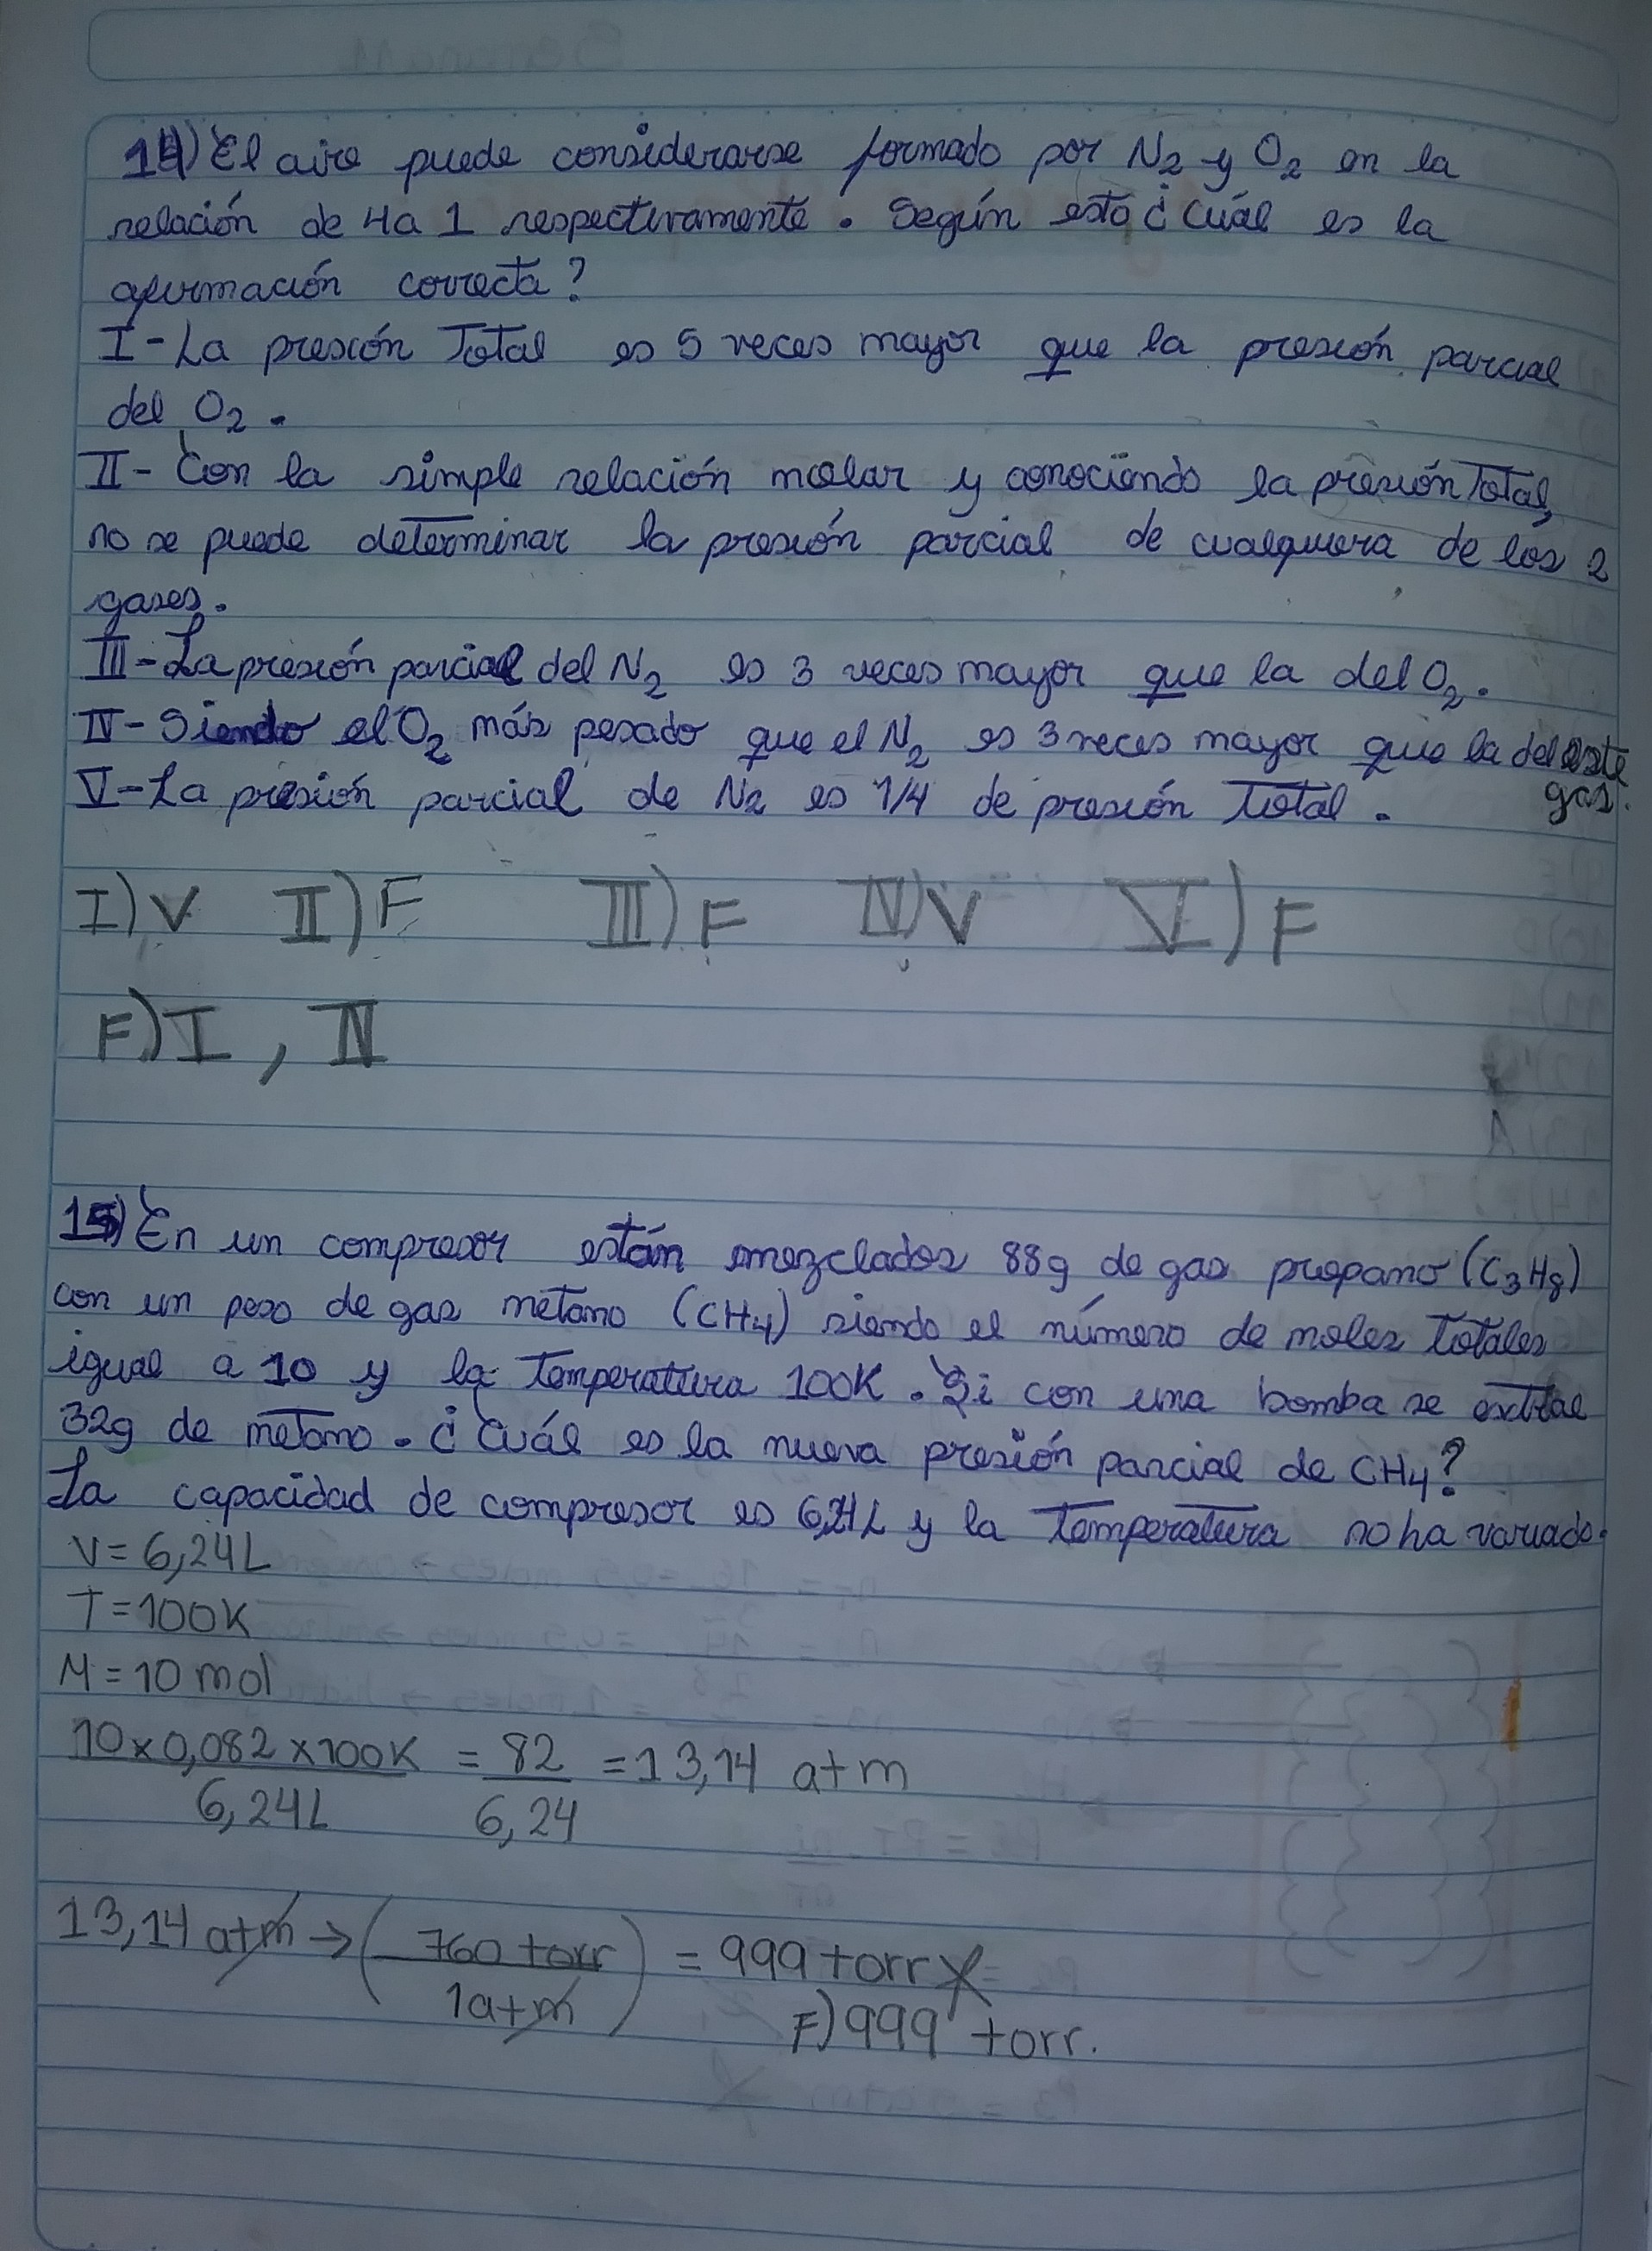 14) El aire puede considerarse formado por N2 y O2 en la
relación de 4a 1 respectivamente. Según esto ¿Cuál es la
afirmación correcta?
I-La presión Total es 5 veces mayor que la presión parcial
del O2.
II- Con la simple relación molar y conociendo la presión Total,
no se puede determinar la presión parcial de cualquiera de los 2
gases.
III-La presión parcial del N2 es 3 veces mayor que la del O2.
IV-Siendo el O2 más pesado que el N2 es 3 veces mayor que la del este
gas.
V-La presión parcial de N2 es 1/4 de presión Total.
I) V II) F III) F IV) V V) F
F) I , IV
15) En un compresor están mezclados 88g de gas propano (C3H8)
con un peso de gas metano (CH4) siendo el número de moles Totales
igual a 10 y la Temperatura 100K. Si con una bomba se extrae
32g de metano. ¿Cuál es la nueva presión parcial de CH4?
La capacidad de compresor es 6,24L y la Temperatura no ha variado.
V = 6,24L
T = 100K
M = 10 mol
10 x 0,082 x 100K = 82 = 13,14 atm
6,24L 6,24
13,14 atm → ( 760 torr ) = 999 torr
1 atm
F) 999 torr.